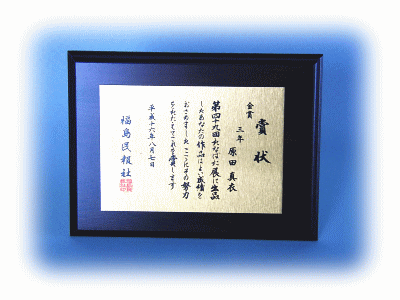 賞状
金賞
三年 原田真衣
第四十九回たなばた展に出品
したあなたの作品はよい成績を
おさめました ここにその努力
をたたえてこれを賞します
平成十六年八月七日
福島民報社